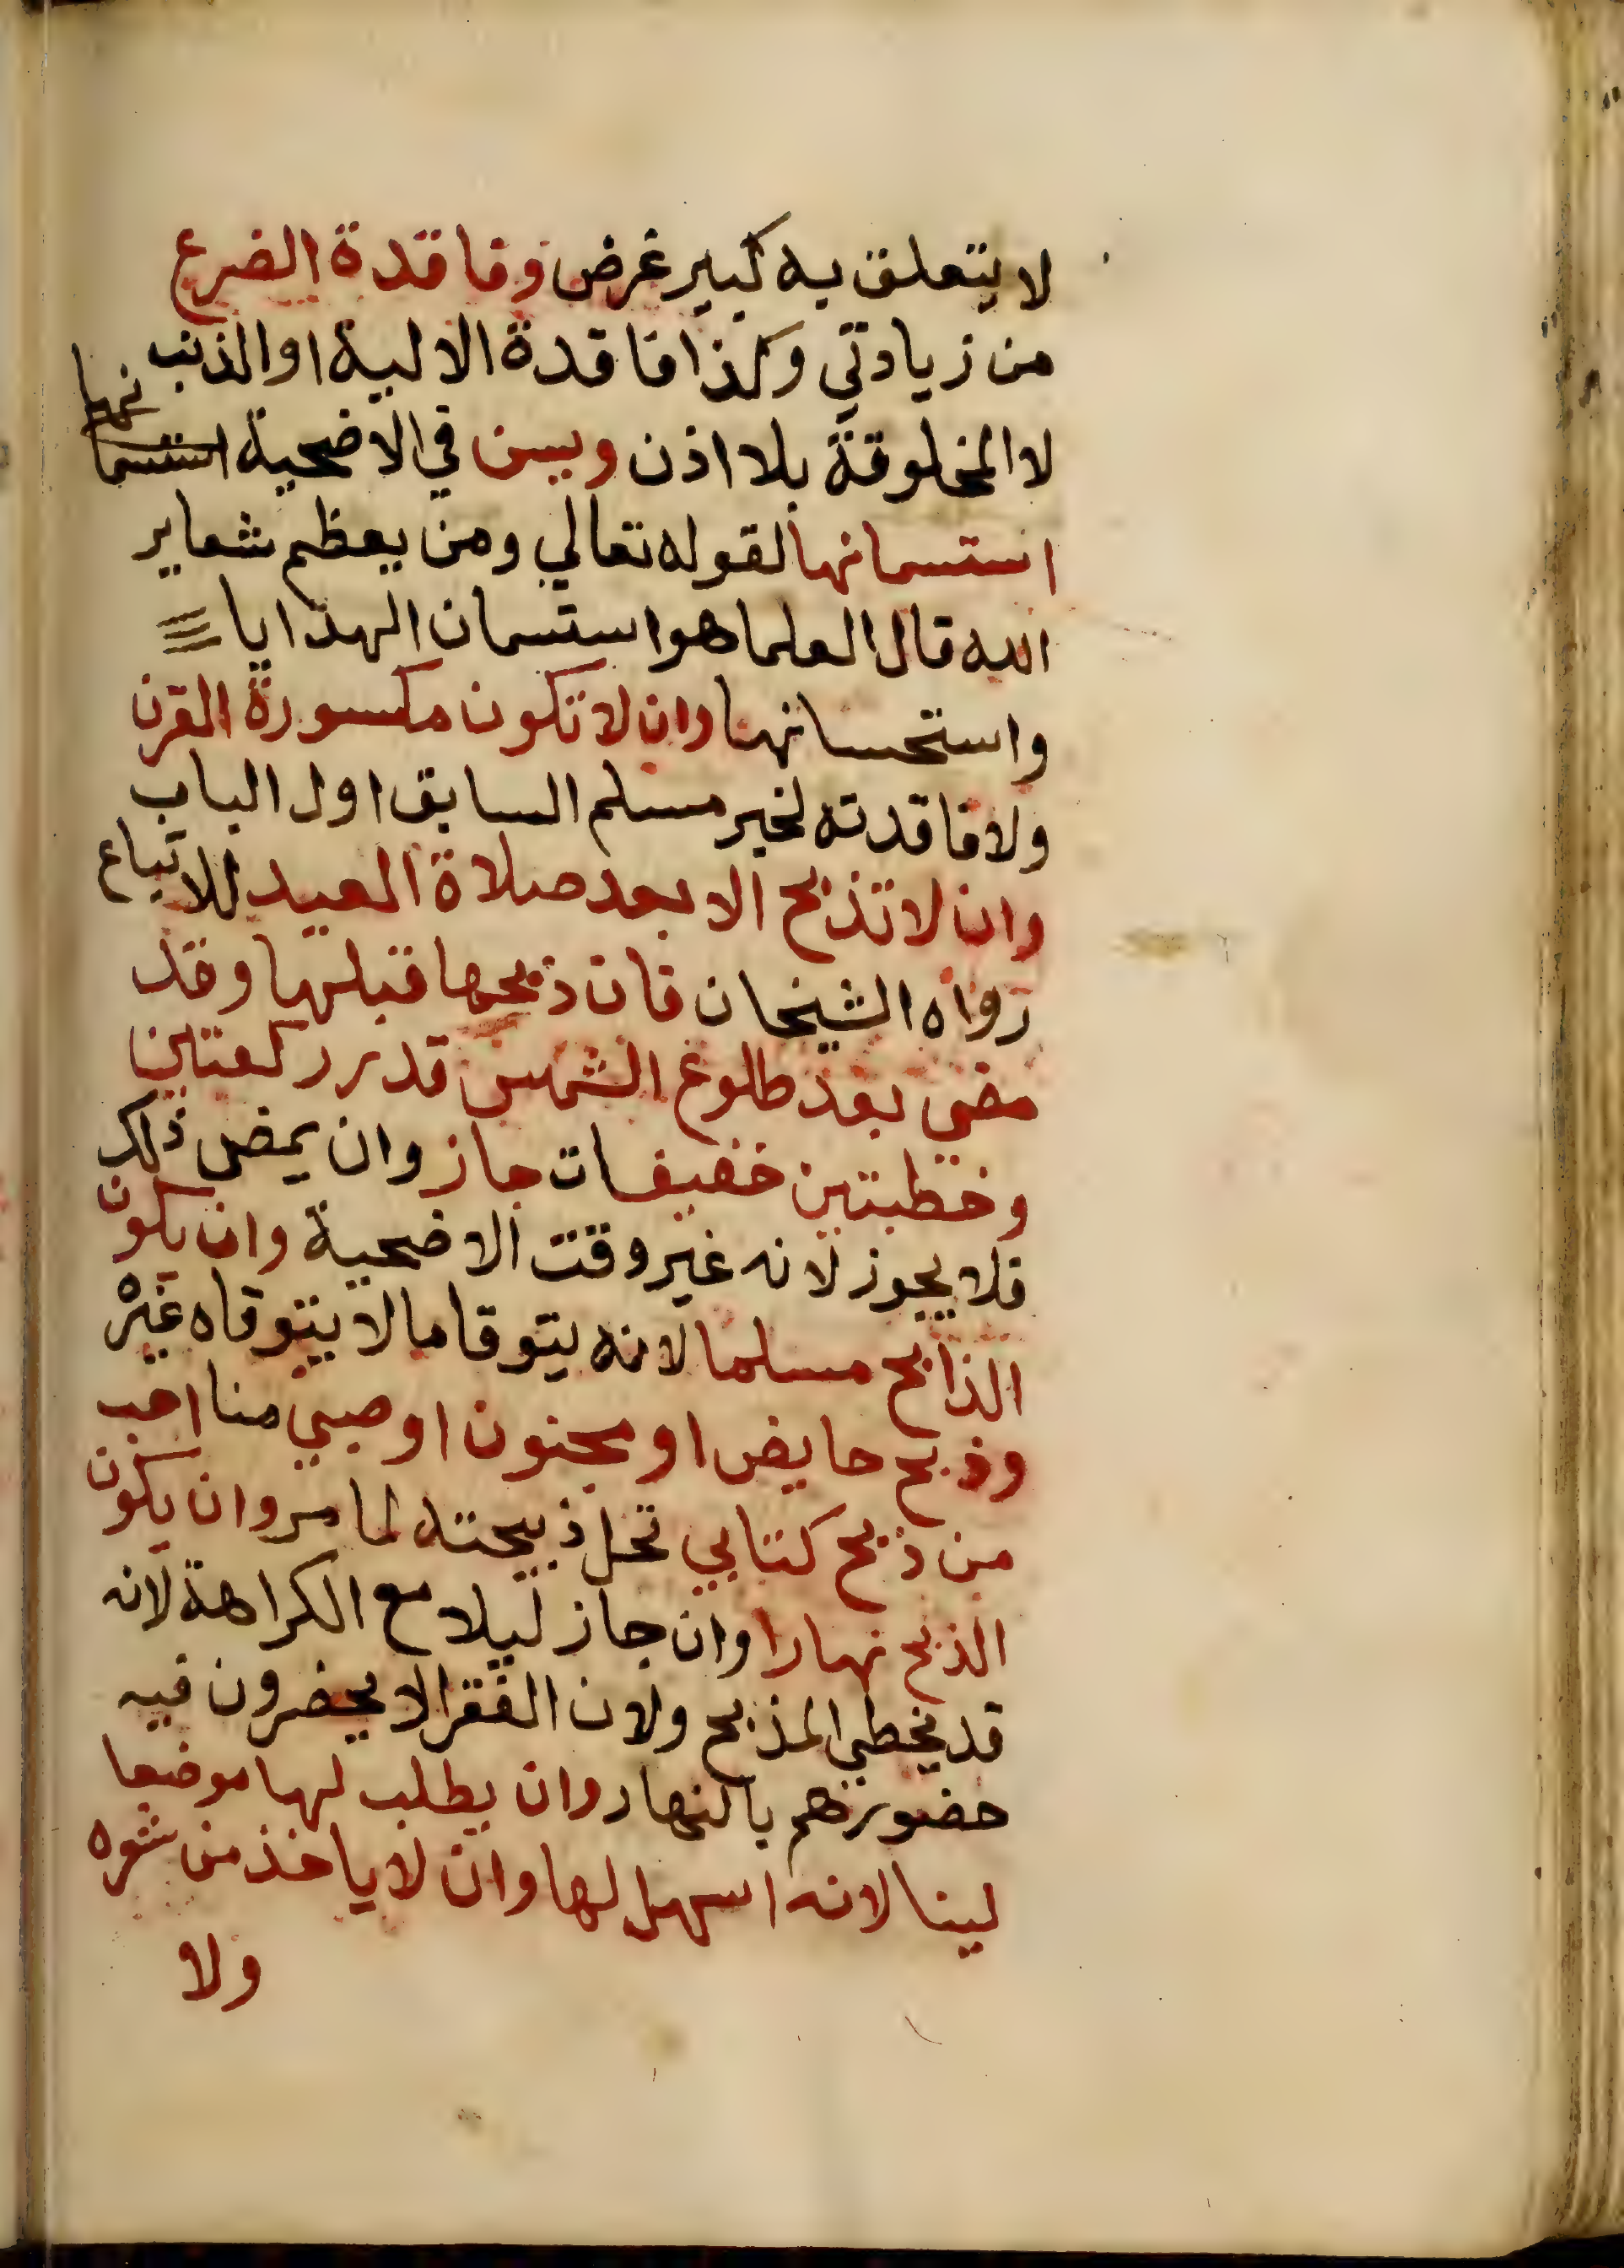 لا يتعلق به كبير غرض وفاقدة الضرع
من زيادتي وكذا فاقدة الالية او الذنب
لا المخلوقة بلا اذن ويسن في الاضحية استسمانها
استسمانها لقوله تعالي ومن يعظم شعاير
الله قال العلما هو استسمان الهدايا
واستحسانها وان لا تكون مكسورة القرن
ولا فاقدته لخبر مسلم السابق اول الباب
وان لا تذبح الا بعد صلاة العيد للاتباع
رواه الشيخان فان ذبحها قبلها وقد
مضي بعد طلوع الشمس قدر ركعتين
وخطبتين خفيفات جاز وان يمض ذلك
فلا يجوز لانه غير وقت الاضحية وان يكون
الذابح مسلما لانه يتوقا ما لا يتوقاه غيره
وذبح حايض او مجنون او صبي منا احب
من ذبح كتابي تحل ذبيحته لما مر وان يكون
الذبح نهارا وان جاز ليلا مع الكراهة لانه
قد يخطي المذبح ولان الفقرا لا يحضرون فيه
حضورهم بالنهار وان يطلب لها موضعا
لينا لانه اسهل لها وان لا ياخذ من شعره
ولا